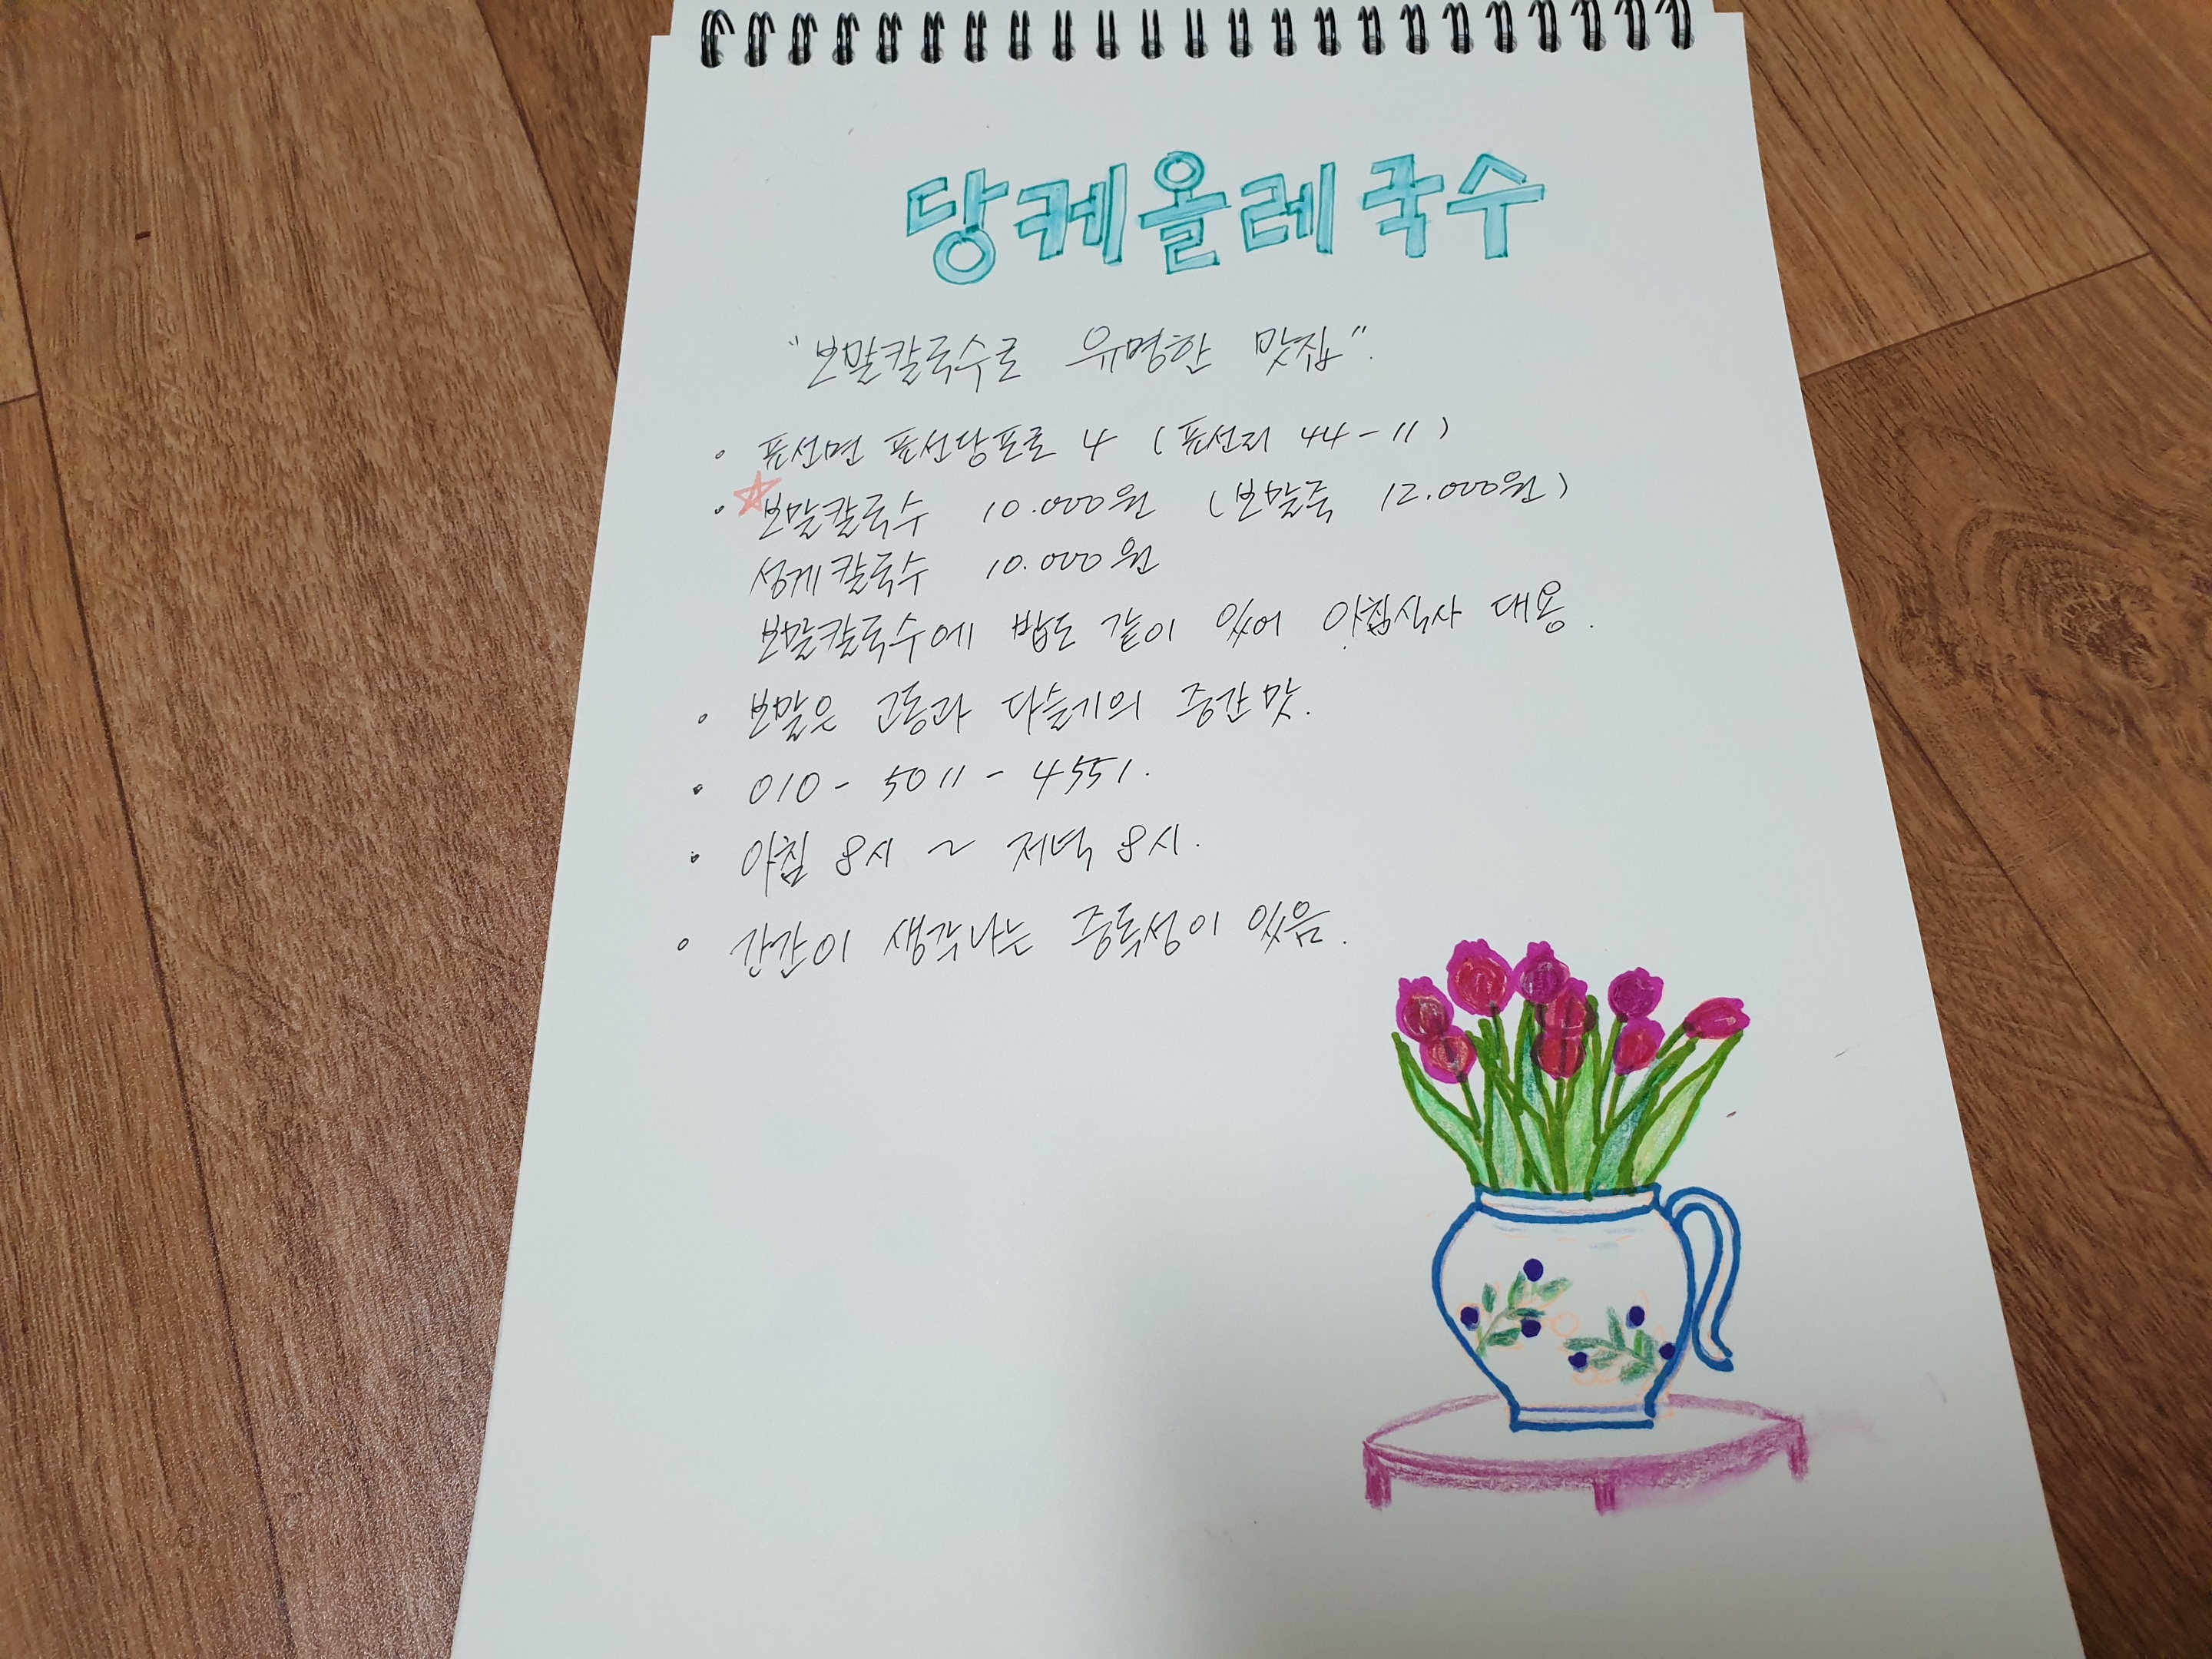 당케올레국수
"보말칼국수로 유명한 맛집".
• 표선면 표선당포로 4 (표선리 44-11)
• ☆보말칼국수 10.000원 (보말죽 12.000원)
성게칼국수 10.000원
보말칼국수에 밥도 같이 있어 아침식사 대용.
• 보말은 고동과 다슬기의 중간맛.
• 010-5011-4551.
• 아침 8시 ~ 저녁 8시.
• 간간이 생각나는 중독성이 있음.